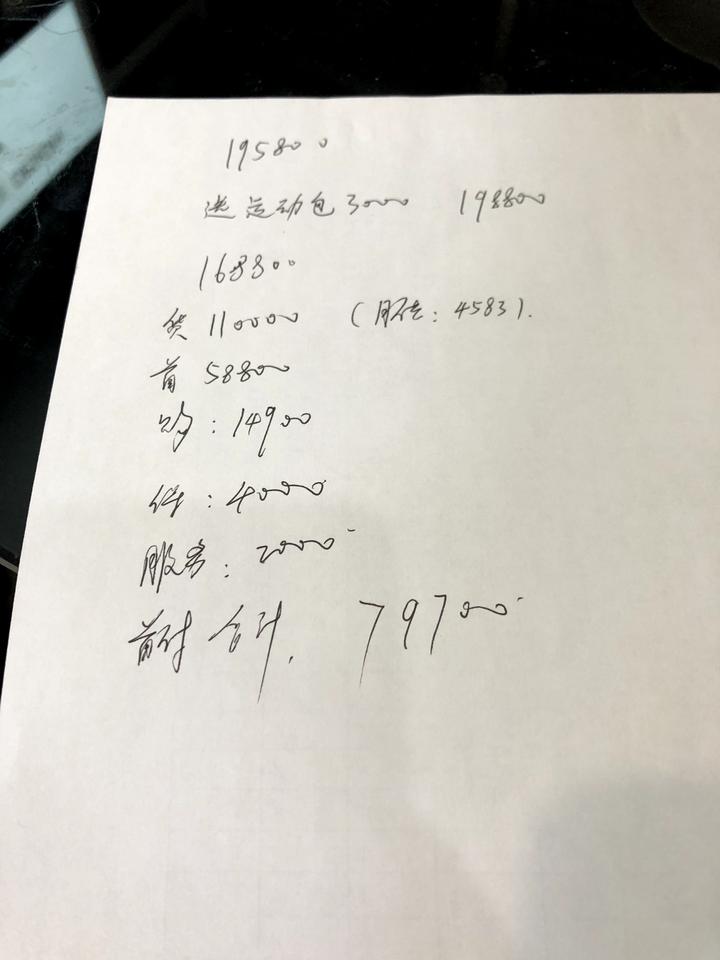 195800
送运动包3000 198800
168800
贷 110000 (月供: 4583).
首 58800
购: 14900
保: 4000
服务: 2000
首付合计. 79700